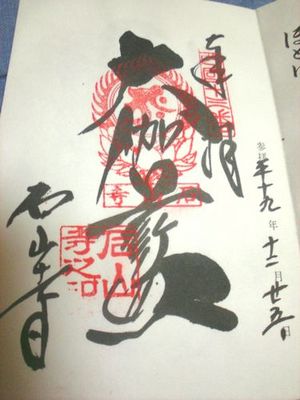 奉拝
参拝 平十九年 十二月 廿五日
大伽藍
石山寺
石山
寺之印